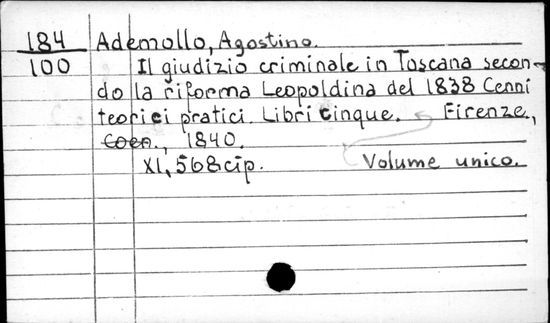 184 Ademollo, Agostino.
100 Il giudizio criminale in Toscana secon-
do la riforma Leopoldina del 1838 Cenni
teorici pratici. Libri cinque. Firenze,
Coen., 1840.
XI, 568cip. Volume unico.